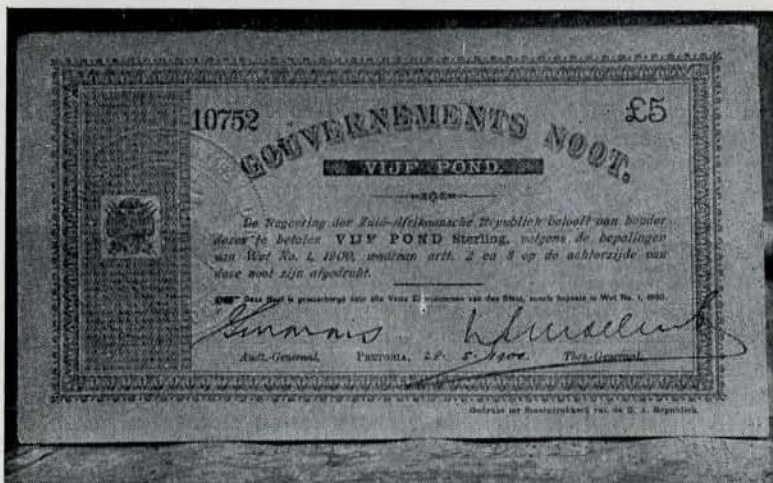 10752 £5
GOUVERNEMENTS NOOT.
VIJF POND.
De Regeering der Zuid-Afrikaansche Republiek belooft aan houder
dezes te betalen VIJF POND Sterling, volgens de bepalingen
van Wet No. 1, 1900, waarvan artt. 2 en 3 op de achterzijde van
deze noot zijn afgedrukt.
Deze Noot is gewaarborgd door alle Vaste Eigendommen van den Staat, zooals bepaald in Wet No. 1, 1900.
Audt.-Generaal. PRETORIA, 28. 5. 1900. Thes.-Generaal.
Gedrukt ter Staatsdrukkerij van de Z. A. Republiek.